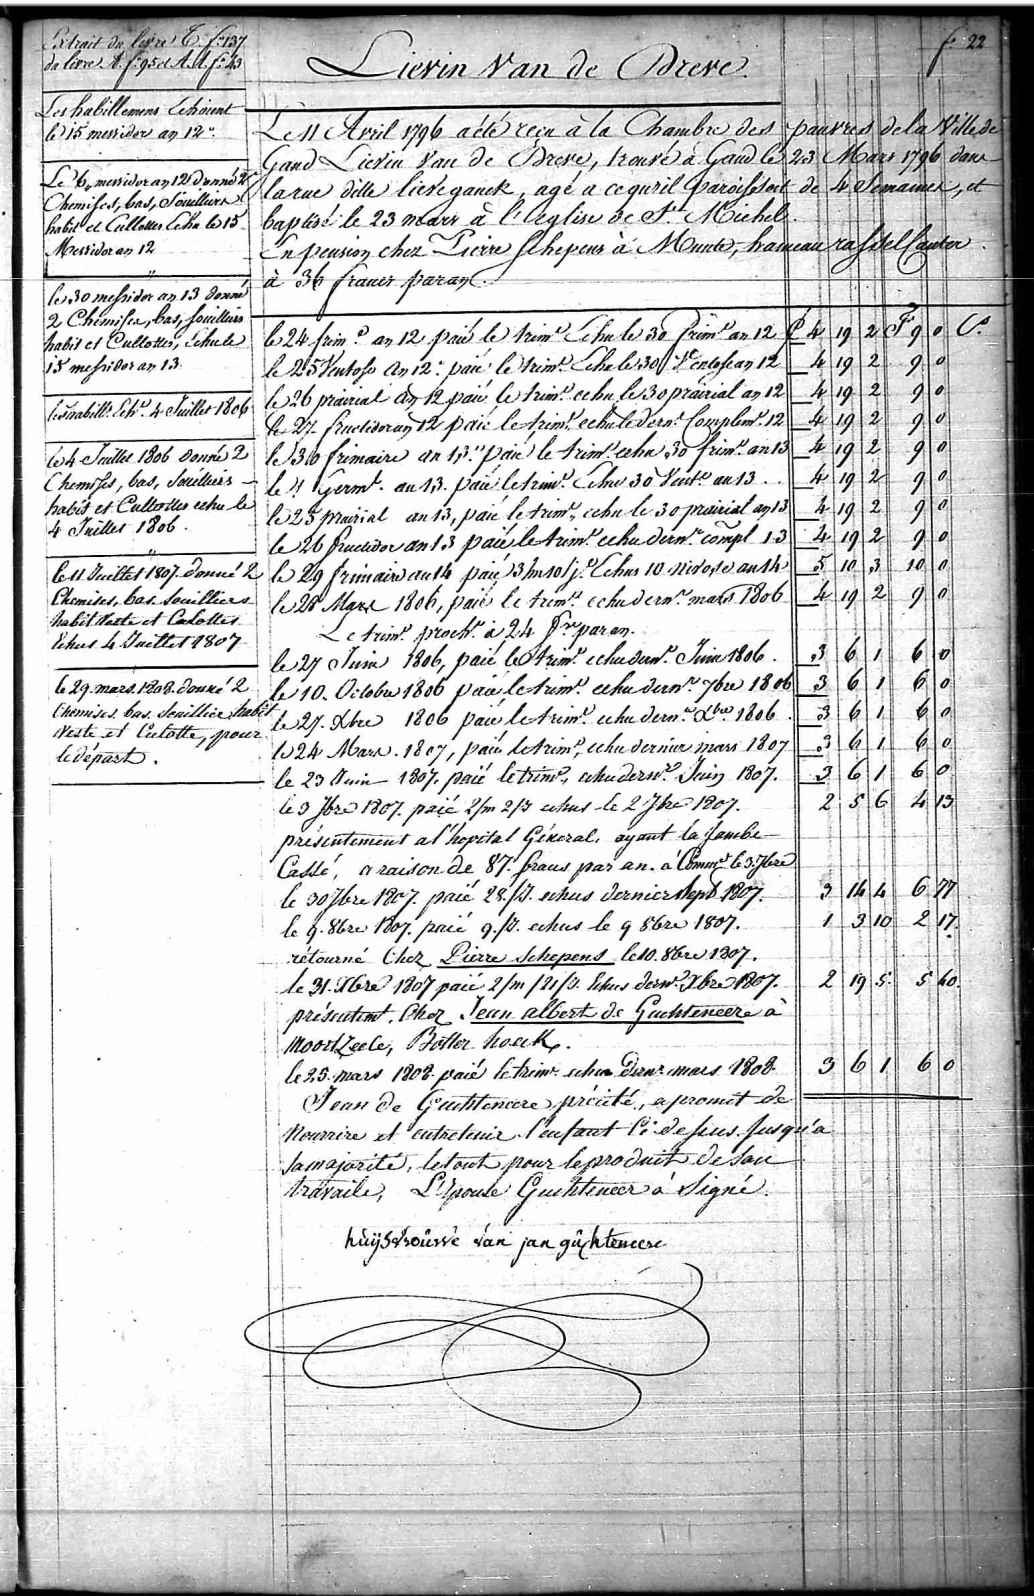 Extrait du livre C. f.º 137
du livre A. f.º 95 et A.A. f.º 43
f.º 22
Lievin Van de Dreve.
Les habillemens Echoient
le 15 messidor an 12.e
Le 6. messidor an 12 donné 2
Chemises, bas, Souilliers
habit et Cullottes Echu le 15
Messidor an 12
"
le 30 messidor an 13 donné
2 Chemises, bas, souilliers
habit et Cullottes, échu le
15 messidor an 13
les habill.s Ech.t 4 Juillet 1806
le 4 Juillet 1806 donné 2
Chemises, bas, Souilliers
habit et Cullottes echu le
4 Juillet 1806.
"
le 11 Juillet 1807. donné 2
Chemises, bas, souilliers
habit veste et Culottes
Echus 4 Juillet 1807
le 29. mars. 1808. donné 2
Chemises, bas, Souillier, habit
veste et Culotte, pour
le départ.
Le 11 Avril 1796 a été reçu à la Chambre des pauvres de la Ville de
Gand Lievin Van de Dreve, trouvé à Gand le 23 Mars 1796 dans
la rue dite lievegank, agé a ce qu'il paroissoit de 4 Semaines, et
baptisé le 23 mars à l'Eglise de S.t Michel.
En pension chez Pierre Schepens à Munte, hameau
à 36 francs par an.
le 24 frim.e an 12 paié le trim.e Echu le 30 frim.e an 12 £ 4 19 2 F 9 0 C.s
le 25 Ventose an 12.e paié le trim.e Echu le 30 Ventose an 12 4 19 2 9 0
le 26 prairial an 12 paié le trim.e echu le 30 prairial an 12 4 19 2 9 0
le 27 fructidor an 12 paié le trim.e echu le dern.r Complem.e 12 4 19 2 9 0
le 30 frimaire an 13.e paié le trim.e echu 30 frim.e an 13 4 19 2 9 0
le 1 Germ.l an 13. paié le trim.e Echu 30 Vent.e an 13 . . 4 19 2 9 0
le 25 prairial an 13, paié le trim.e echu le 30 prairial an 13 4 19 2 9 0
le 26 fructidor an 13 paié le trim.e echu dern.r compl 13 4 19 2 9 0
le 29 frimaire an 14 paié 3 m 10 j.s Echus 10 nivose an 14 5 10 3 10 0
le 28 Mars 1806, paié le trim.e echu dern.r mars 1806 4 19 2 9 0
Le trim.e proch.e à 24 f.cs par an.
le 27 Juin 1806, paié le trim.e echu dern.r Juin 1806. 3 6 1 6 0
le 10. Octobre 1806 paié le trim.e echu dern.r 7bre 1806 3 6 1 6 0
le 27. Xbre 1806 paié le trim.e echu dern.r Xbre 1806. 3 6 1 6 0
le 24 Mars. 1807, paié le trim.e, echu dernier mars 1807 3 6 1 6 0
le 23 Juin 1807. paié le trim.e, echu dern.r Juin 1807. 3 6 1 6 0
le 3 7bre 1807. paié 2/m 2/j echus le 2 7bre 1807. 2 5 6 4 13
présentement a l'hopital Général, ayant la Jambe
Cassé, a raison de 87. francs par an. à Comm.r le 3. 7bre
le 30 7bre 1807. paié 28./j. echus dernier Sept 1807. 3 14 4 6 77
le 9. 8bre 1807. paié 9./j. echus le 9 8bre 1807. 1 3 10 2 17.
rétourné Chez Pierre Schepens le 10. 8bre 1807.
le 31. Xbre 1807 paié 2/m/21/j. Echus dern.r Xbre 1807. 2 19 5 5 40.
présentem.t Chez Jean albert de Guchteneere à
Moortzeele, Botter hoek.
le 25. mars 1808. paié le trim.e echu Dern.r mars 1808. 3 6 1 6 0
Jean de Guchteneere précité, a promit de
Nourrire et entretenir l'enfant Ci. dessus Jusqu'a
sa majorité, le tout pour le produit de son
travaile, L'Epouse Guchteneer a Signé.
huÿsvroûwe van jan gûchteneere